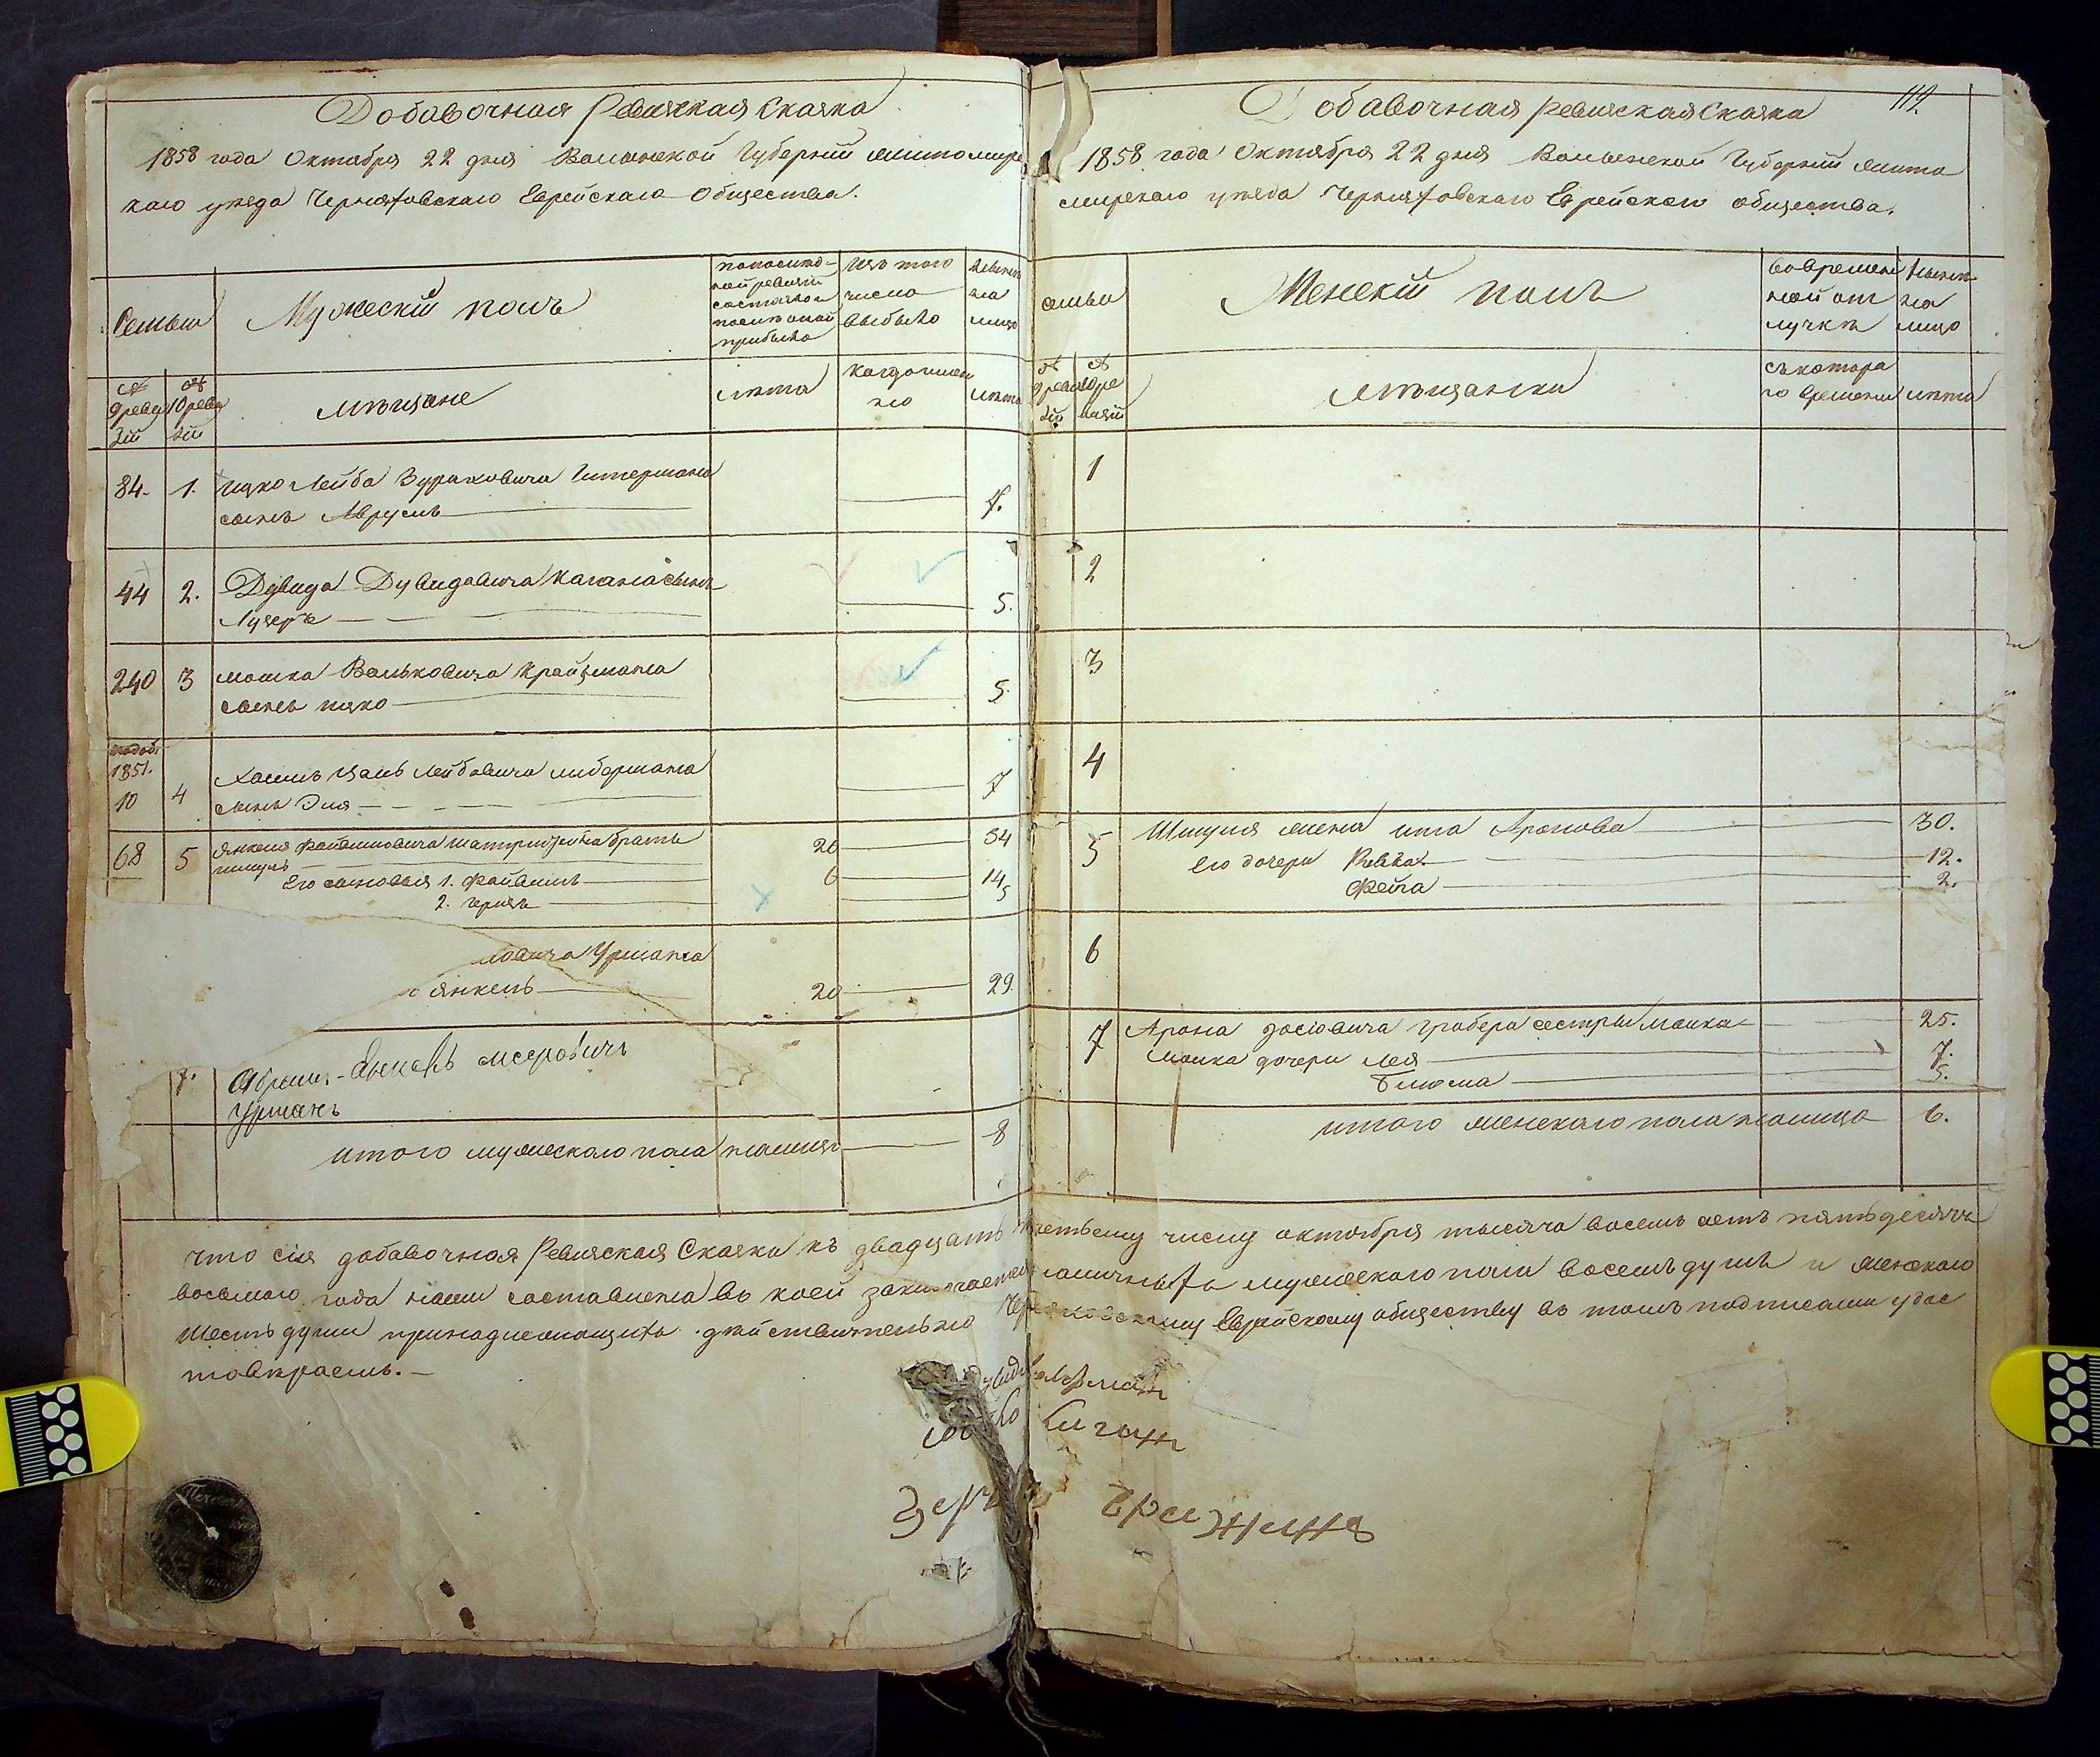 Добавочная Ревизская Сказка
1858 года Октября 22 дня Волынской Губернии Житомирс
каго уезда Черняховскаго Еврейскаго Общества.
Семьи
Мужескій полъ
по послѣд-
ней ревизіи
состояло и
послѣ оной
прибыло
Изъ того
числа
выбыло
Нынѣ
на
лицо
№
9 реви
зіи
№
10 реви
зіи
мѣщане
лѣта
когда имен
но
лѣта
84. 1. Ицко Лейба Зураховича Гитермана
сынъ Аврумъ 4.
44 2. Дувида Дувидовича Кагана сынъ
Лузеръ 5.
240 3 Мошка Вольковича Крайзмана
сынъ Ицко 5.
1851.
10 4 Хаимъ Цаль Лейбовича Либермана
сынъ Эля 7
68 5 Янкеля Файвишовича братъ
26 34
Его сыновья 1. Файвишъ 6 14
2. Гершъ 5
ловича Урмана
Янкель 20 29.
7. Абрумъ-Янкель Мееровичъ
Урманъ
итого мужескаго пола налицо 8
119.
Добавочная Ревизская Сказка
1858 года Октября 22 дня Волынской Губерніи Жито
мирскаго уезда Черняховскаго Еврейскаго общества.
семьи
Женскій полъ
Во времен
ной от
лучкѣ
Нынѣ
на
лицо
№
9 реви
зіи
№
10 ре
визіи
мѣщанки
съ котора
го времени
лѣта
1
2
3
4
5 Шмуля жена Ита Аронова 30.
Его дочери Ривка 12.
Фейга 2.
6
7 Арона Іосіовича Грабера сестры Малка 25.
Малка дочери Лея 7.
Блюма 5.
итого женскаго пола налицо 6.
Что сія добавочная Ревизская Сказка къ двадцать третьему числу октября тысяча восемь сотъ пятьдесятъ
восьмаго года нами составлена въ коей заключается наличныхъ мужескаго пола восемь душъ и женскаго
шесть души принадлежащихъ действительно Черняховскому Еврейскому обществу въ томъ подписями удос
товѣряемъ.—